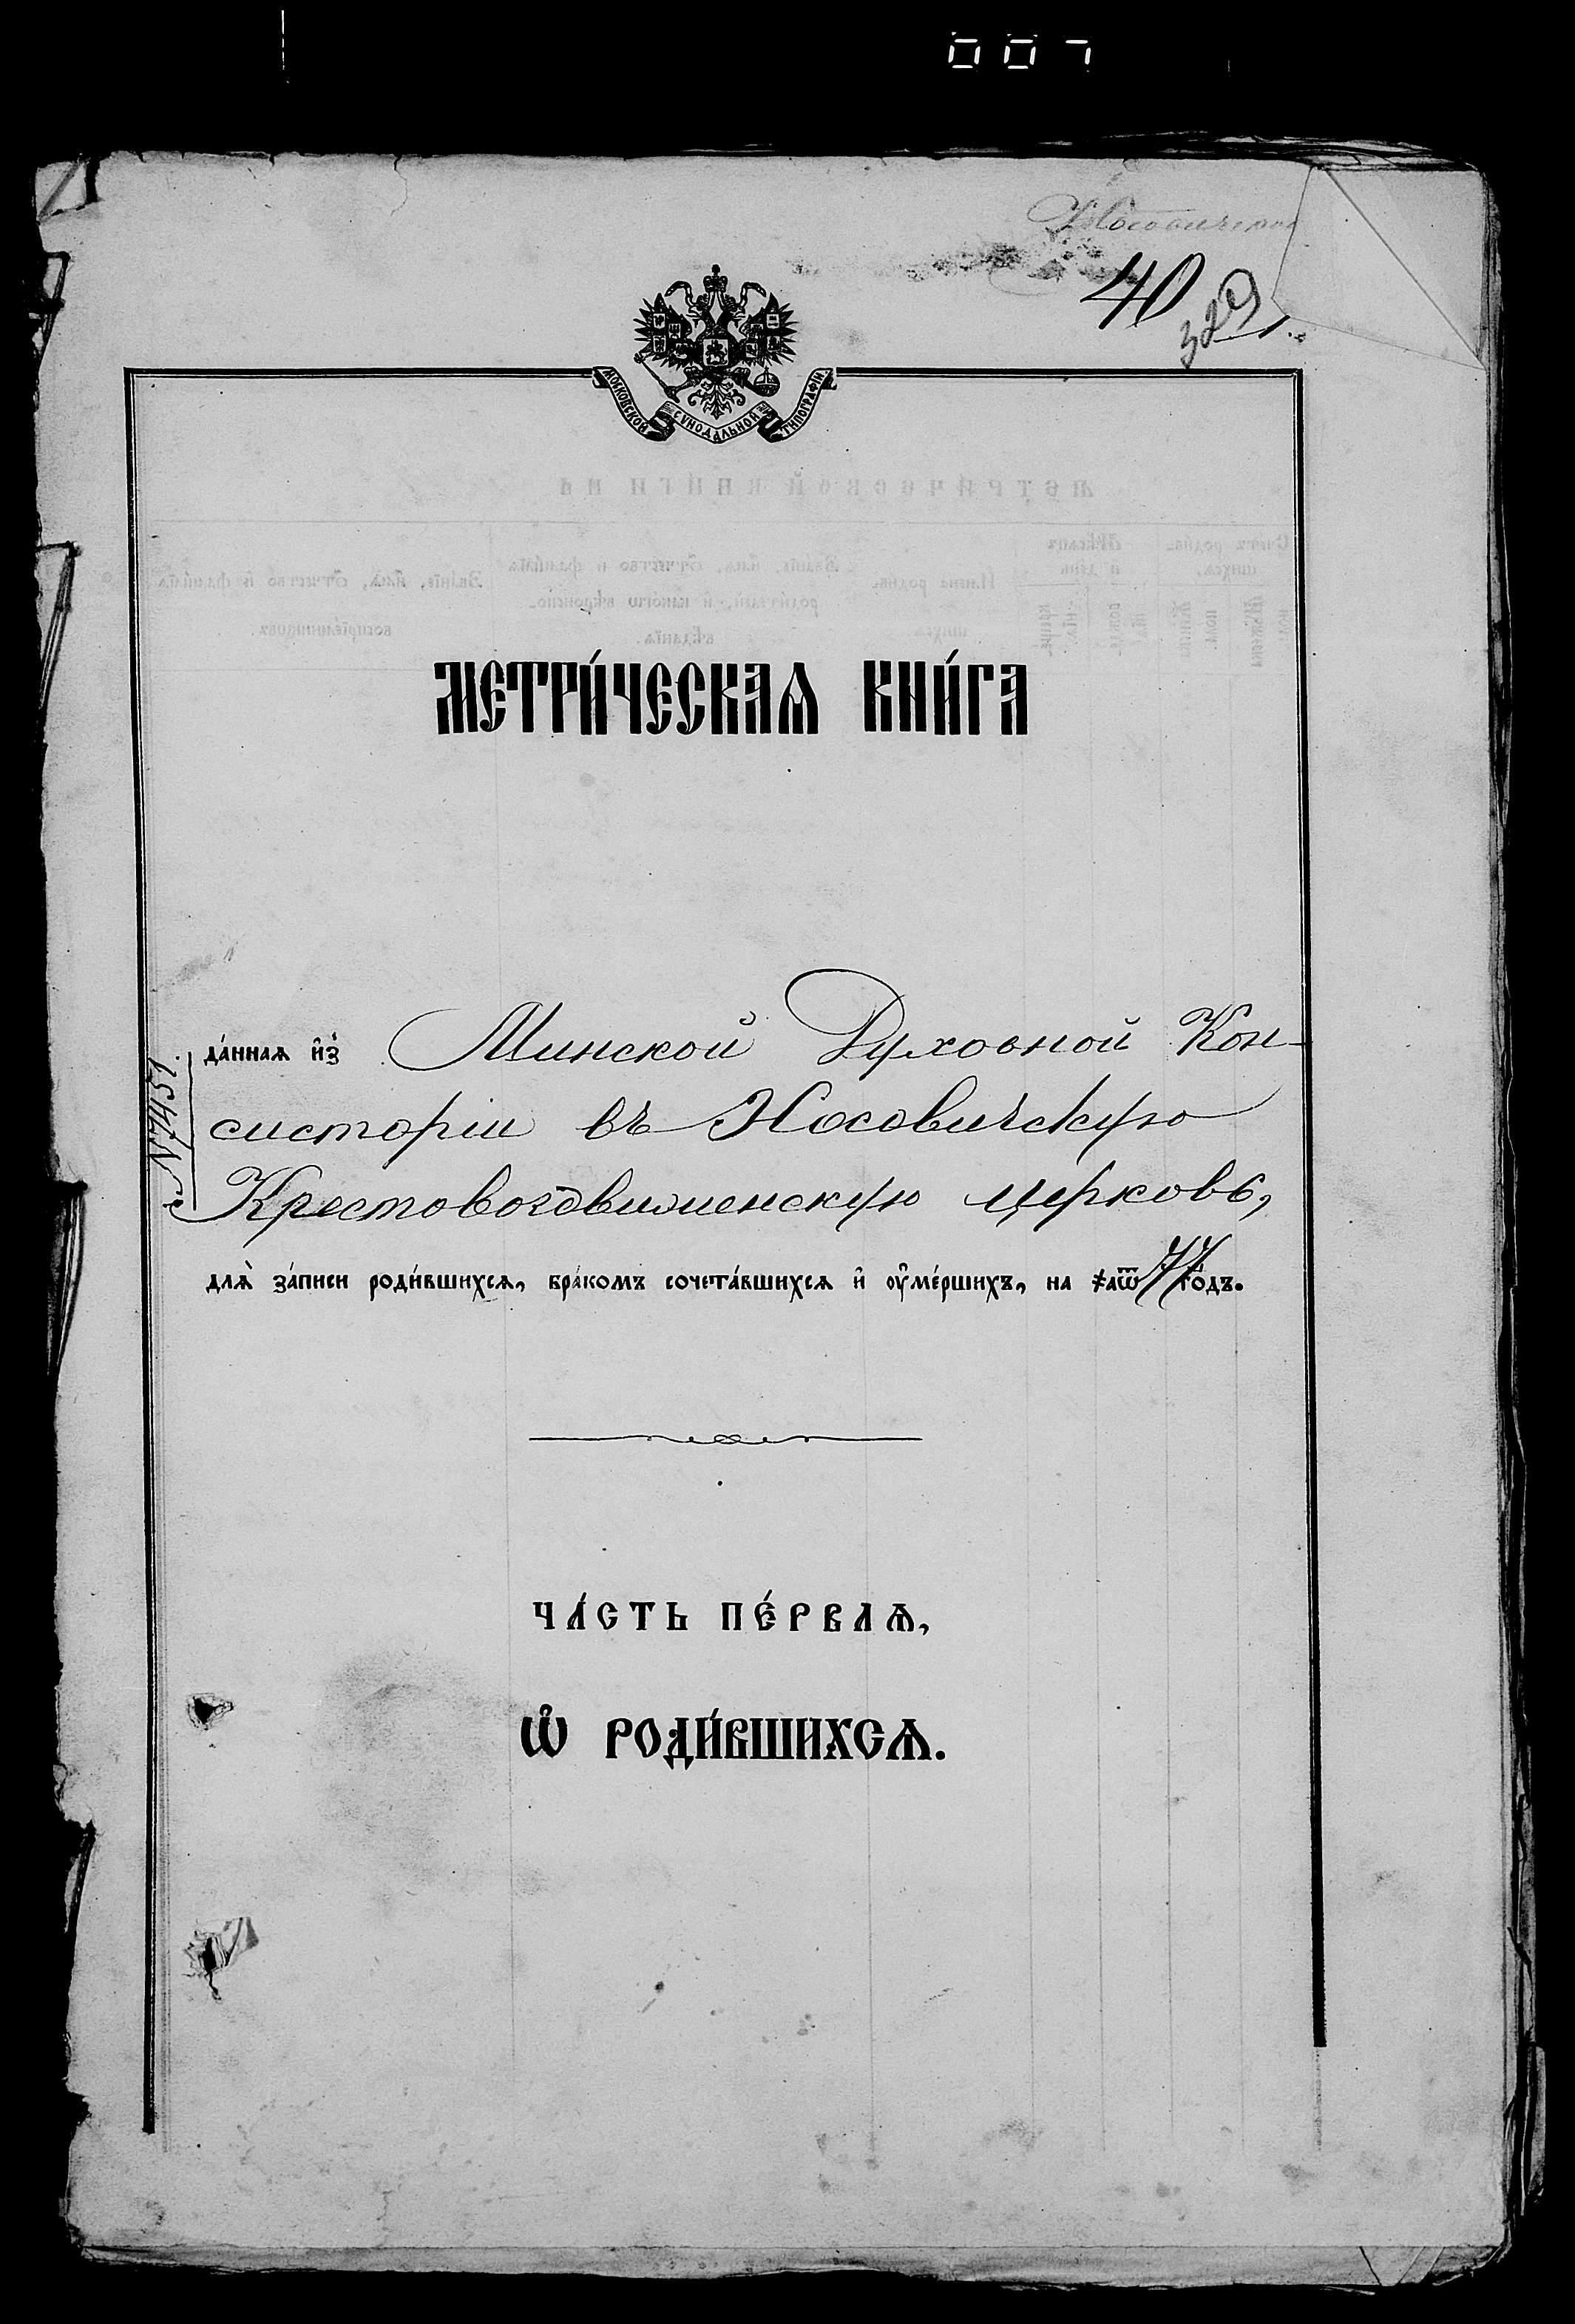 007
Носовичской
40
329
МОСКОВСКОЙ СѴНОДАЛЬНОЙ ТИПОГРАФІИ
МЕТРИ́ЧЕСКАѦ КНИ́ГА
да́ннаѧ и҆з̾ Минской Духовной Кон-
систоріи въ Носовичскую
Крестовоздвиженскую церковь,
длѧ̀ за́писи роди́вшихсѧ, бра́комъ сочета́вшихсѧ и҆ ᲂу҆ме́ршихъ, на ҂аѿ77 го́дъ.
№ 7451.
ЧА́СТЬ ПЕ́РВАѦ,
Ѡ҆ РОДИ́ВШИХСѦ.